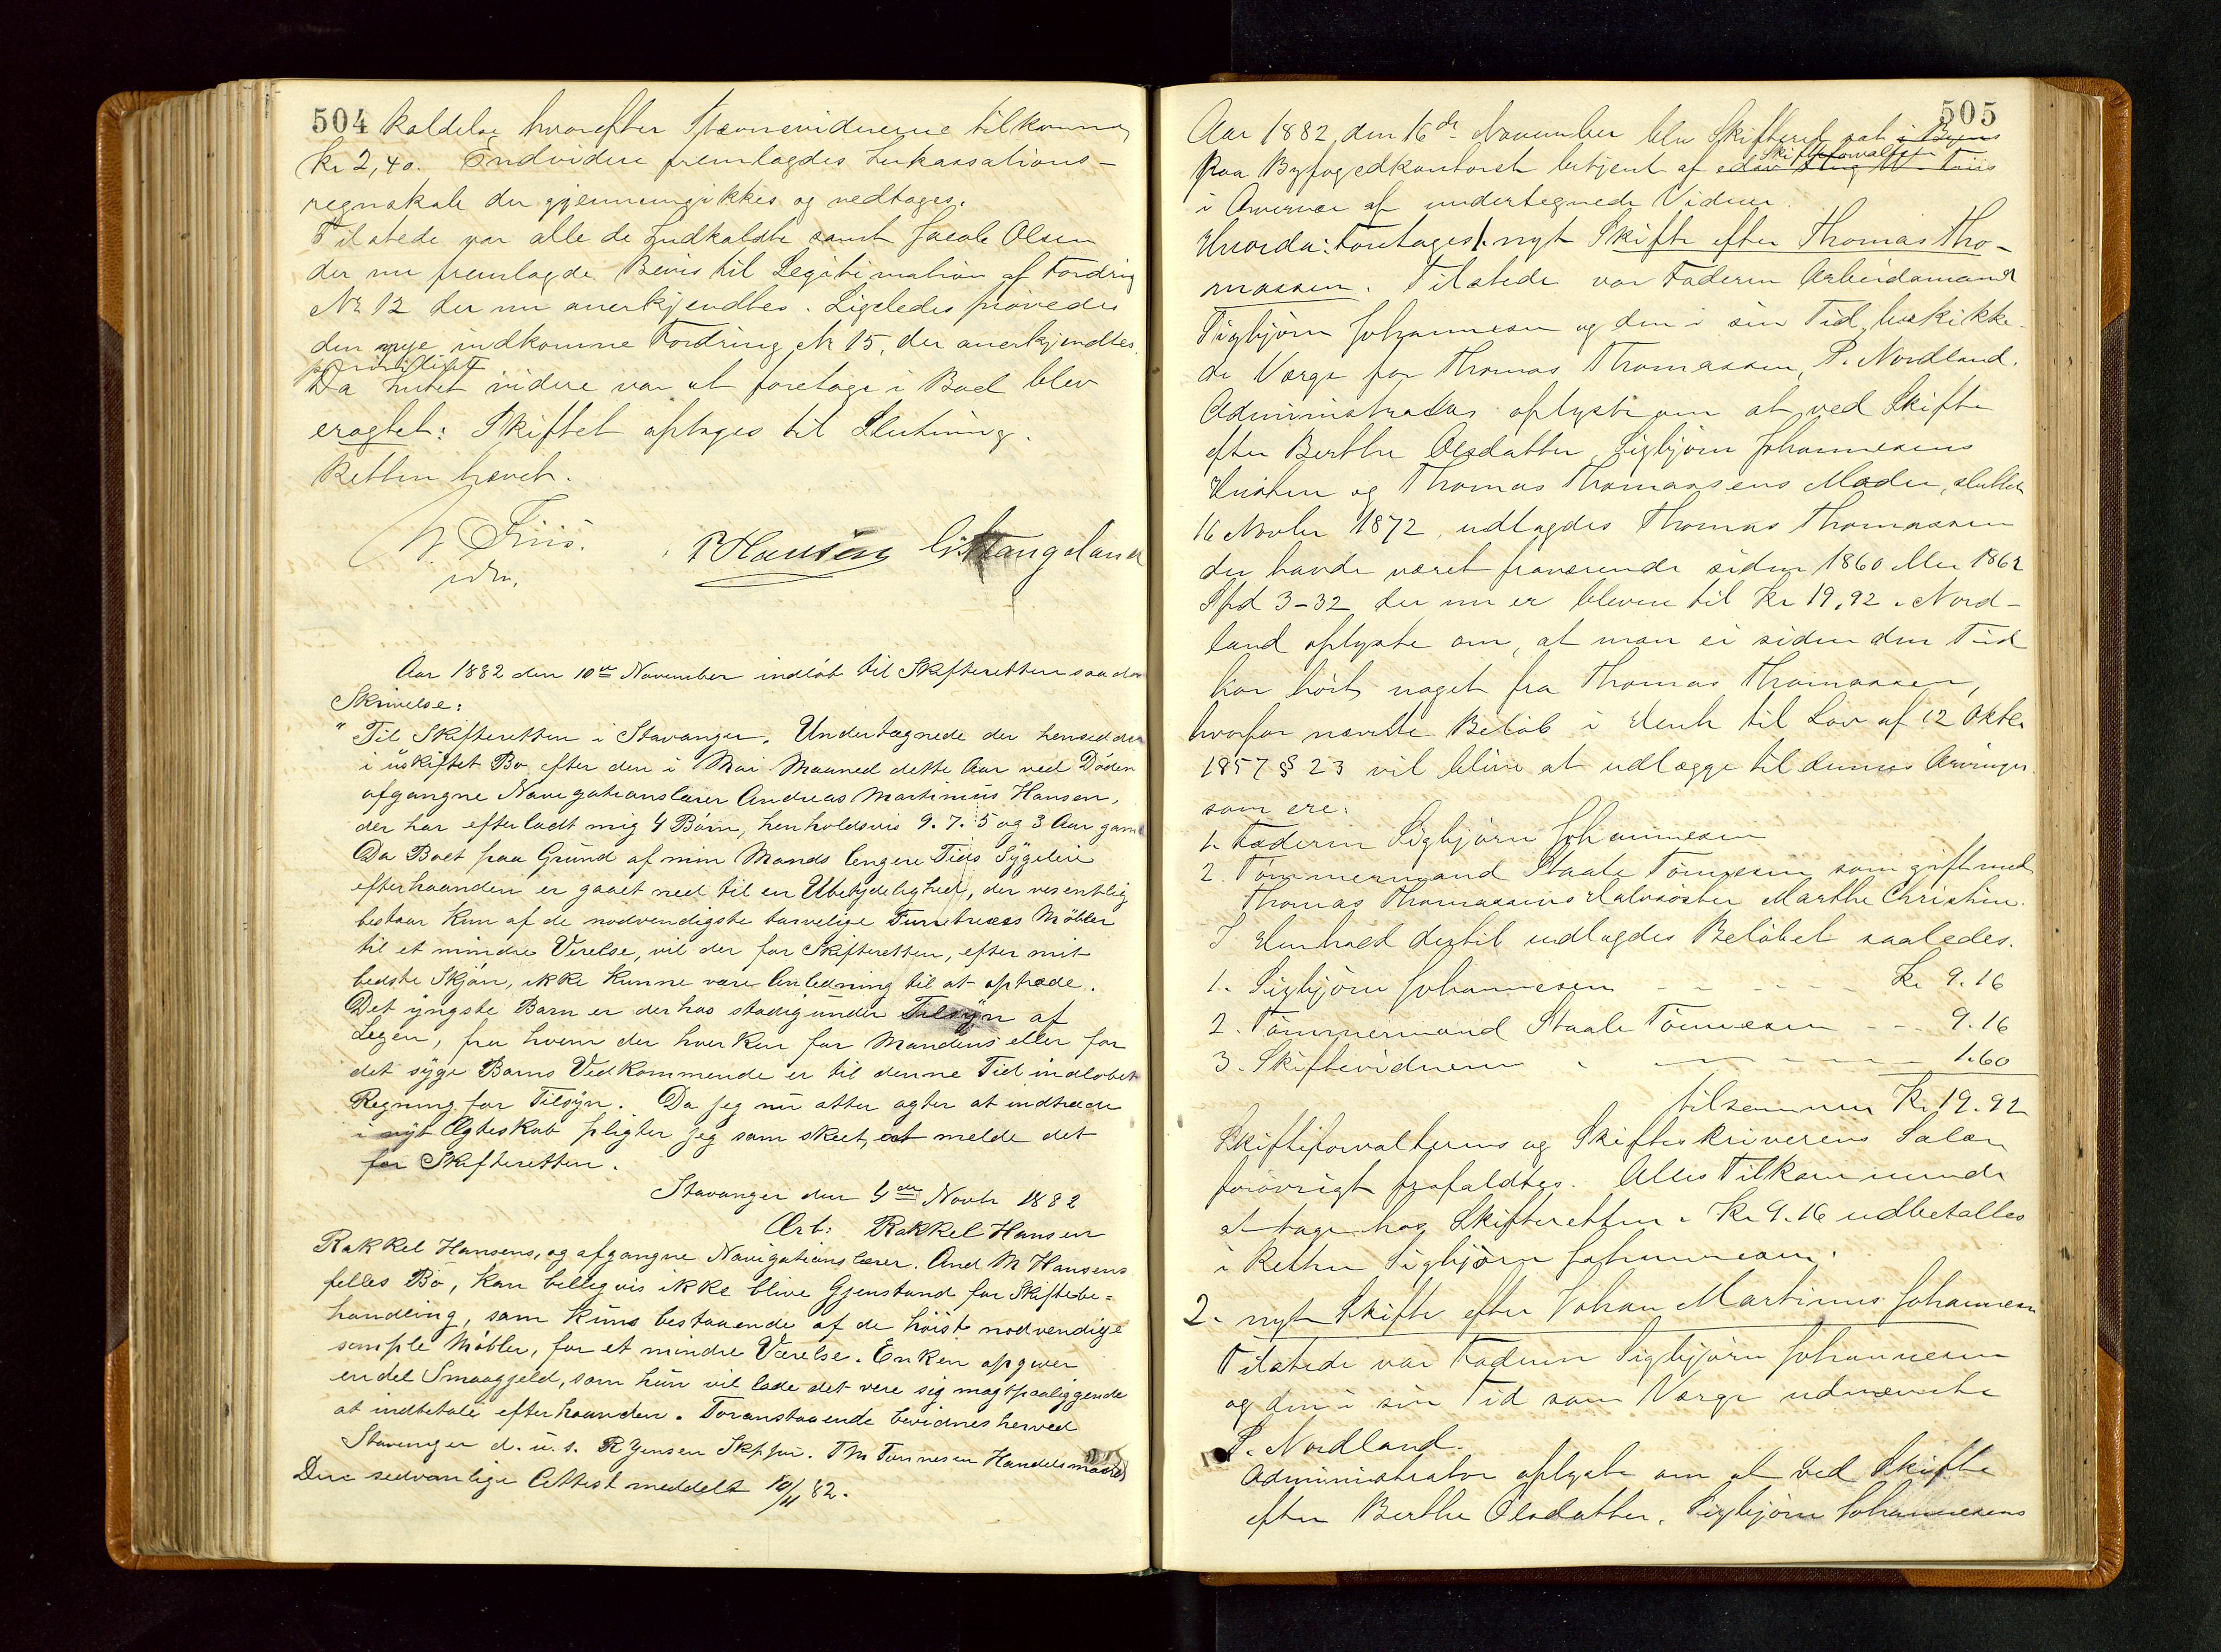 504
kaldelse hvorefter Stevnevidnerne tilkommer
Kr 2,40. Endvidere fremlagdes Inkassations-
regnskab der gjennemgikkes og vedtages.
Tilstede var alle de Indkaldte samt Jacob Olsen
der nu fremlagde Bevis til Legitimation af Fordring
No 12 der nu anerkjendtes. Ligeledes prøvedes
den nye indkomne Fordring No 15, der anerkjendtes
Da Intet videre var at foretage i Boet blev
eragtet: Skiftet optages til Slutning.
Retten hævet.
W Friis. P Hansen G Stangeland
Aar 1882 den 10de November indløb til Skifteretten saadan
Skrivelse:
"Til Skifteretten i Stavanger. Undertegnede der hensidder
i uskiftet Bo efter den i Mai Maaned dette Aar ved Døden
afgangne Navigationslærer Andreas Martinius Hansen,
der har efterladt mig 4 Børn, henholdsvis 9. 7. 5 og 3 Aar gaml
Da Boet paa Grund af min Mands lengere Tids Sygeleie
efterhaanden er gaaet ned til en Ubetydelighed, der vesentlig
bestaar kun af de nødvendigste tarvelige Furutræes Møbler
til et mindre Verelse, vil der for Skifteretten, efter mit
bedste Skjøn, ikke kunne være Anledning til at optræde.
Det yngste Barn er der hos stadig under Tilsyn af
Legen, fra hvem der hverken for Mandens eller for
det syge Barns Vedkommende er til denne Tid indløbet
Regning for Tilsyn. Da jeg nu atter agter at indtræde
i nyt Ægteskab pligter jeg som skeet, at melde det
for Skifteretten.
Stavanger den 4de Novbr 1882
Ærb: Rakkel Hansen
Rakkel Hansens, og afgangne Navigationslærer. And M Hansens
felles Bo, kan billigvis ikke blive Gjenstand for Skiftebe=
handling, som kuns bestaaende af de høist nødvendige
simple Møbler, for et mindre Værelse. Enken opgiver
en del Smaagjeld, som hun vil lade det vere sig magtpaaliggende
at indbetale efterhaanden. Foranstaaende bevidnes herved
Stavanger d. u. s. R Jensen Skpfør. Th Tønnesen Handelsmand
Den sedvanlige Attest meddelt 10/11 82.
505
Aar 1882 den 16de November blev Skifteret sat i Byens
paa Bygfogedkontoret betjent af Skifteforvalter
i Overvær af undertegnede Vidner.
Hvorda: Foretages 1. nyt Skifte efter Thomas Tho-
massen. Tilstede var Faderen Arbeidsmand
Sigbjørn Johannesen og den i sin Tid beskikke-
de Værge for Thomas Thomassen, P. Nordland.
Administrator oplyste om at ved Skifte
efter Berthe Olsdatter, Sigbjørn Johannesens
Hustru og Thomas Thomassens Moder, sluttet
16 Novbr 1872, udlagdes Thomas Thomassen
der havde været fraværende siden 1860 eller 1862
Spd 3-32 der nu er bleven til Kr 19,92. Nord-
land oplyste om, at man ei siden den Tid
har hørt noget fra Thomas Thomassen,
hvorfor nævnte Beløb i Henh til Lov af 12 Oktbr
1857 § 23 vil blive at udlægge til dennes Arvinger
som ere:
1. Faderen Sigbjørn Johannesen
2. Tømmermand Staale Tønnesen som gift med
Thomas Thomassens Halvsøster Marthe Christine.
I Henhold dertil udlagdes Beløbet saaledes.
1. Sigbjørn Johannesen - - - - - Kr 9.16
2. Tømmermand Staale Tønnesen - - 9.16
3. Skiftevidnerne - - - - - 1.60
tilsammen Kr 19.92
Skifteforvalterens og Skifteskriverens Salær
forøvrigt frafaldtes. Alles Tilkommende
at tage hos Skifteretten. Kr 9.16 udbetaltes
i Retten Sigbjørn Johannesen.
2. nyt Skifte efter Johan Martinus Johannesen
Tilstede var Faderen Sigbjørn Johannesen
og den i sin Tid som Værge udnævnte
P. Nordland.
Administrator oplyste om at ved Skifte
efter Berthe Olsdatter, Sigbjørn Johannesens